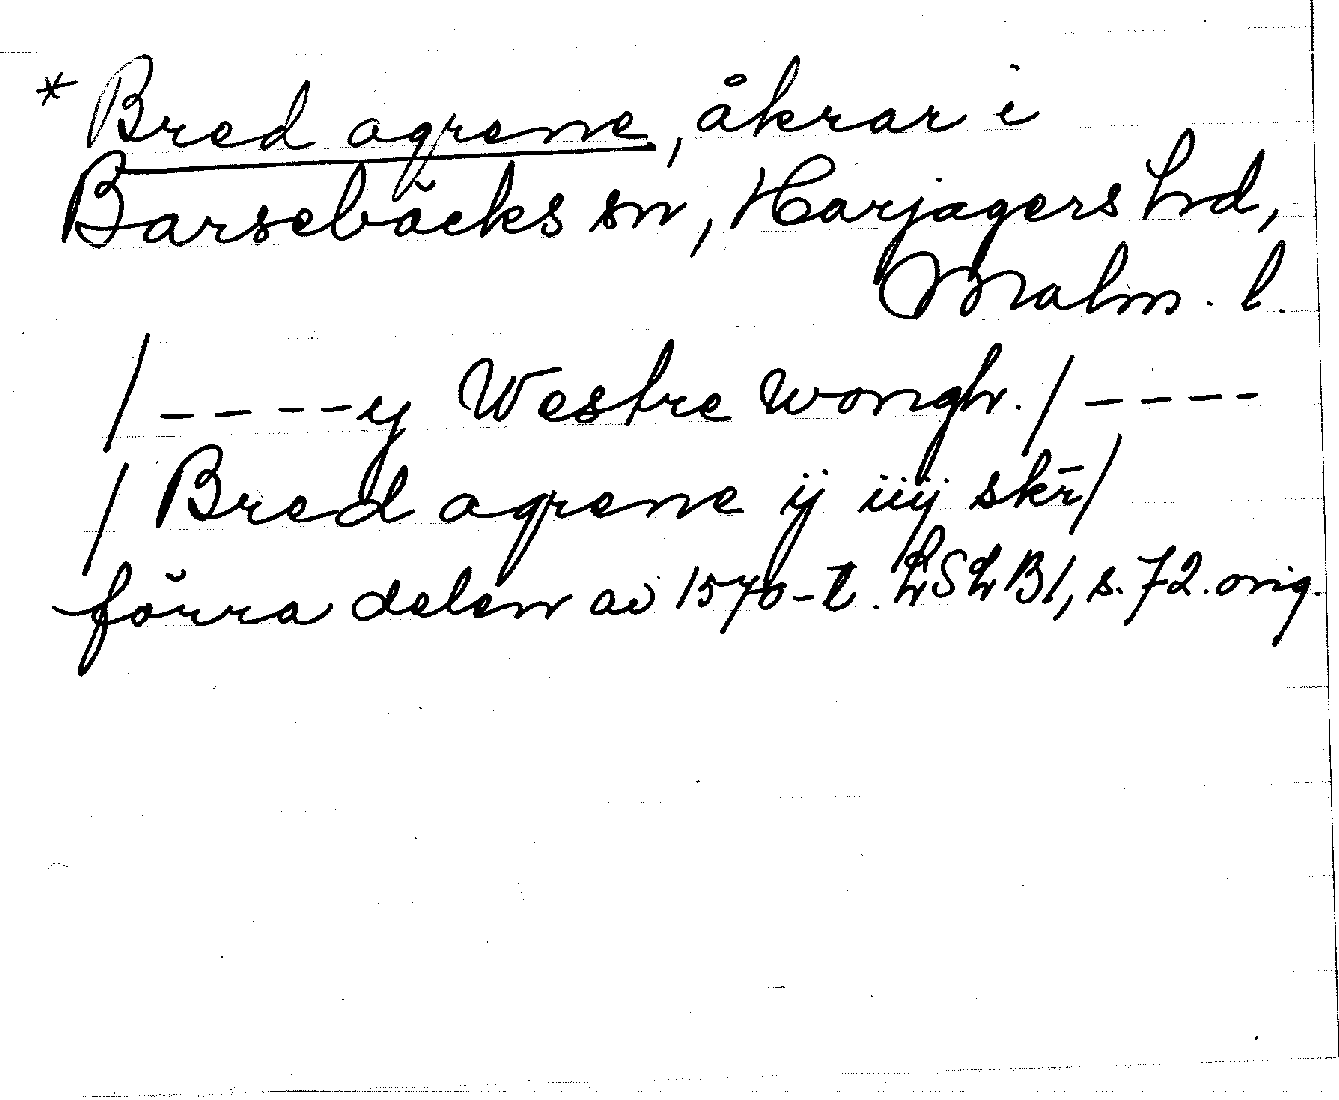 * Bred agrene, åkrar i
Barsebäcks sn, Harjagers hd,
Malm. l.
/ - - - - y Westre wongh. / - - - -
/ Bred agrene ij iiij skr̄ /
förra delen av 1570-t. LSLB1, s. 72. orig.